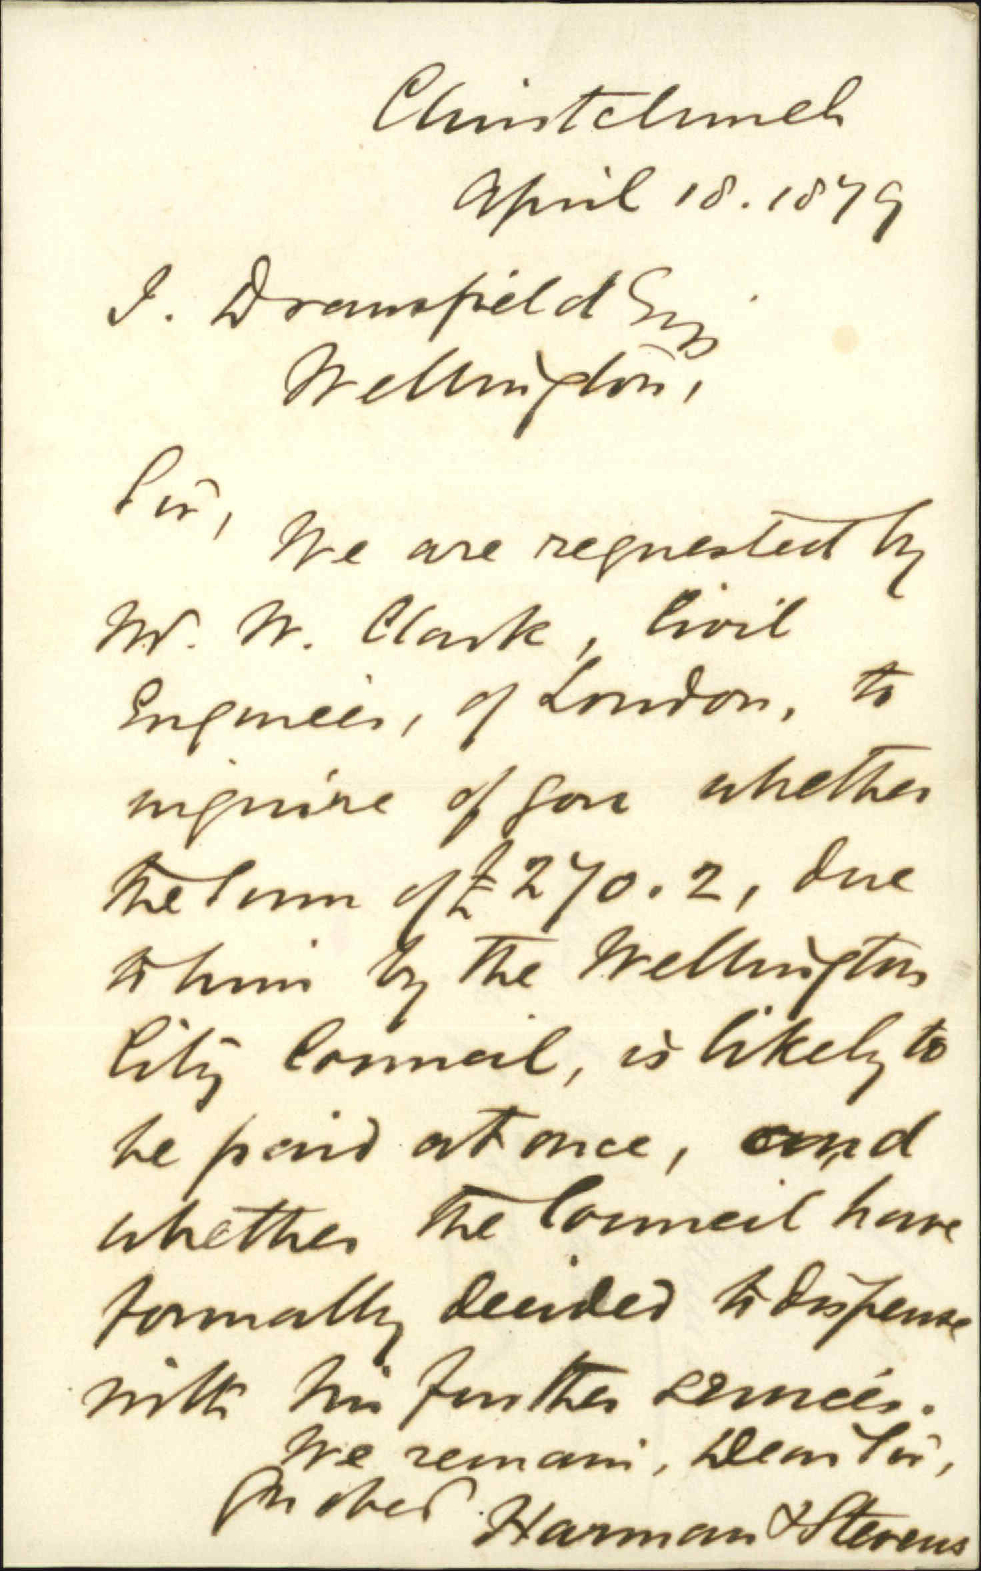 Christchurch
April 18. 1879
J. Dransfield Esq
Wellington,
Sir,
We are requested by
Mr. W. Clark, Civil
Engineer, of London, to
inquire of you whether
the sum of £270.2, due
to him by the Wellington
City Council, is likely to
be paid at once, and
whether the Council have
formally decided to dispense
with his further services.
We remain, Dear Sir,
Yr obed
Harman & Stevens